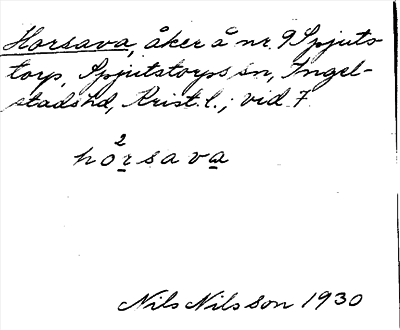 Horsava, åker å nr 9 Spjuts-
torp, Spjutstorps sn, Ingel-
stads hd, Krist. l.; vid 7.
ho²rsava
Nils Nilsson 1930